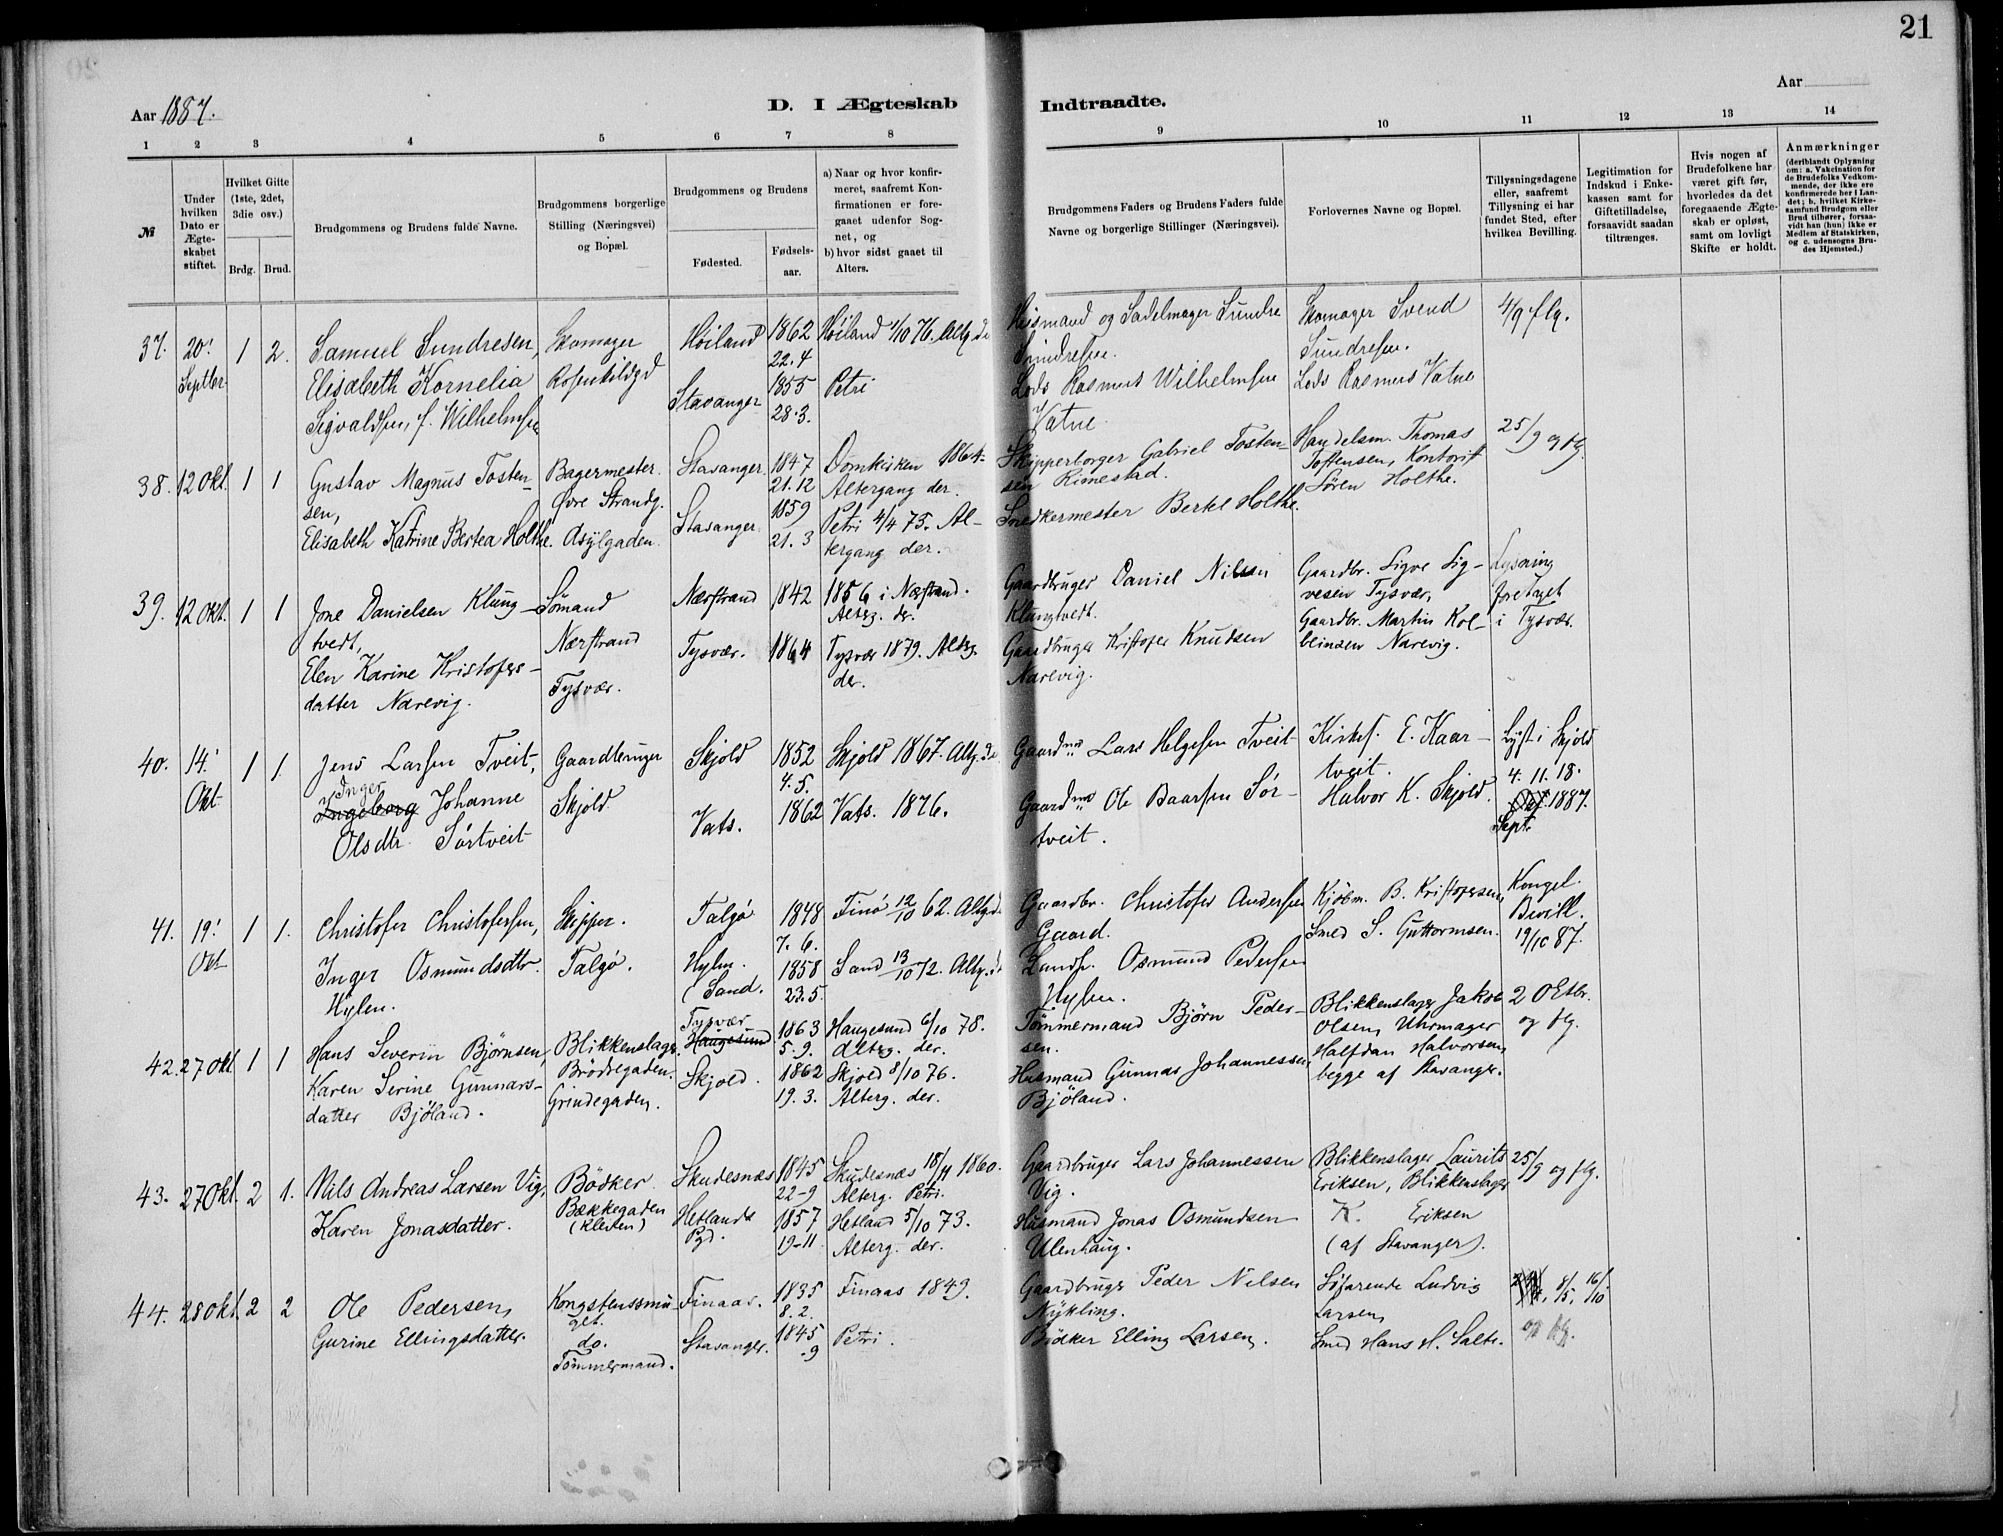 21
Aar 1887.
D. I Ægteskab Indtraadte.
Aar
1 2 3 4 5 6 7 8 9 10 11 12 13 14
№
Under hvilken Dato er Ægteskabet stiftet.
Hvilket Gifte (1ste, 2det, 3die osv.)
Brdg. Brud.
Brudgommens og Brudens fulde Navne.
Brudgommens borgerlige Stilling (Næringsvei) og Bopæl.
Brudgommens og Brudens
Fødested.
Fødsels-aar.
a) Naar og hvor konfirmeret, saafremt Konfirmationen er foregaaet udenfor Sognet, og
b) hvor sidst gaaet til Alters.
Brudgommens Faders og Brudens Faders fulde Navne og borgerlige Stillinger (Næringsvei).
Forlovernes Navne og Bopæl.
Tillysningsdagene eller, saafremt Tillysning ei har fundet Sted, efter hvilken Bevilling.
Legitimation for Indskud i Enkekassen samt for Giftetilladelse, forsaavidt saadan tiltrænges.
Hvis nogen af Brudefolkene har været gift før, hvorledes da det foregaaende Ægteskab er opløst, samt om lovligt Skifte er holdt.
Anmærkninger
(deriblandt Oplysning om: a. Vakcination for de Brudefolks Vedkommende, der ikke ere konfirmerede her i Landet; b. hvilket Kirkesamfund Brudgom eller Brud tilhører, forsaavidt han (hun) ikke er Medlem af Statskirken, og c. udensogns Brudes Hjemsted.)
37. 20! Septler 1 2.
Samuel Sundresen,
Elisabeth Kornelia
Sigvaldsen, f. Wilhelmsen
Skomager
Rosenkildgd
Høiland
Stavanger
1862
22.4
1855
28.3.
Høiland 1/10 76. Altg. de
Petri
Husmand og Sadelmager Sundre
Sundresen.
Lods Rasmus Wilhelmsen
Vatne
Skomager Svend
Sundresen.
Lods Rasmus Vatne
4/9 flg.
38. 12 Okt. 1 1
Gustav Magnus Tosten-
sen,
Elisabeth Katrine Bertea Holthe.
Bagermester.
Øvre Strandg.
Asylgaden.
Stavanger
Stavanger
1847
21.12
1859
21.3
Domkirken 1864.
Altergang der.
Petri 4/4 75. Al-
tergang der.
Skipperborger Gabriel Tosten-
sen Rimestad.
Snedkermester Bertel Holthe.
Handelsm. Thomas
Tostensen, Kontorist
Søren Holthe.
25/9 og flg.
39. 12 Okt. 1 1
Jone Danielsen Klung-
tvedt,
Elen Karine Kristofers-
datter Narevig.
Sømand
Nærstrand
Tysvær.
Nærstrand
Tysvær.
1842
1864
1856 i Nærstrand.
Alterg. der.
Tysvær 1879. Alterg.
der.
Gaardbruger Daniel Nilsen
Klungtvedt.
Gaardbruger Kristofer Knudsen
Narevig.
Gaardbr. Sigve Sig-
vesen Tysvær,
Gaardbr. Martin Kol-
beinsen Narevig.
Lysning
foretaget
i Tysvær.
40. 14! Okt 1 1.
Jens Larsen Tveit,
Inger
Ingeborg Johanne
Olsdtr. Sørtveit
Gaardbruger
Skjold
Skjold
Vats.
1852
4.5.
1862
Skjold 1867. Altg. de
Vats. 1876.
Gaardmd Lars Helgesen Tveit
Gaardmd Ole Baarsen Sør-
tveit.
Kirkes. E. Kaar-
tveit.
Halvor K. Skjold.
Lyst i Skjold
4. 11. 18.
Okt. 1887.
Sept.
41. 19! Okt 1 1.
Christofer Christofersen,
Inger Osmundsdtr.
Hylen.
Skipper.
Talgø.
Talgø
Hylen.
(Sand.
1848
7.6.
1858
23.5.
Finø 12/10 62. Altg. d.
Sand 13/10 72. Altg. d.
Gaardbr. Christofer Andersen
Gaard.
Landh. Osmund Pedersen
Hylen.
Kjøbm. B. Kristofersen,
Smed S. Guttormsen.
Kongel.
Bevill.
19/10 87.
42. 27 Okt 1 1
Hans Severin Bjørnsen,
Karen Serine Gunnars-
datter Bjøland.
Blikkenslager.
Brødregaden.
Grindegaden.
Tysvær
Haugesund
Skjold.
1863
5.9.
1862
19.3.
Haugesund 6/10 78.
Alterg. der.
Skjold 8/10 76.
Alterg. der.
Tømmermand Bjørn Peder-
sen.
Husmand Gunnar Johannessen
Bjøland.
Blikkenslager Jakob
Olsen, Uhrmager
Halfdan Halvorsen,
begge af Stavanger.
2 Oktbr.
og flg.
43. 27 Okt. 2 1.
Nils Andreas Larsen Vig,
Karen Jonasdatter.
Bødker
Bækkegaden
(Kleiven)
Skudesnæs
Hetlands
Pgd.
1845
22-9
1857
19-11
Skudesnæs 18/11 1860.
Alterg. Petri.
Hetland 5/10 73.
Alterg. der.
Gaardbruger Lars Johannessen
Vig.
Husmand Jonas Osmundsen
Ulenhaug.
Blikkenslager Laurits
Eriksen, Blikkenslager
K. Eriksen
(af Stavanger).
25/9 og flg.
44. 28 Okt 2 2
Ole Pedersen,
Gurine Ellingsdatter.
Kongstenssmu-
get.
do.
Tømmermand.
Finaas.
Stavanger.
1835
8.2.
1845
-9
Finaas 1849.
Petri.
Gaardbruger Peder Nilsen
Nykling.
Bødker Elling Larsen.
Søfarende Ludvig
Larsen,
Smed Hans H. Salte.
8/5, 16/10
og flg.